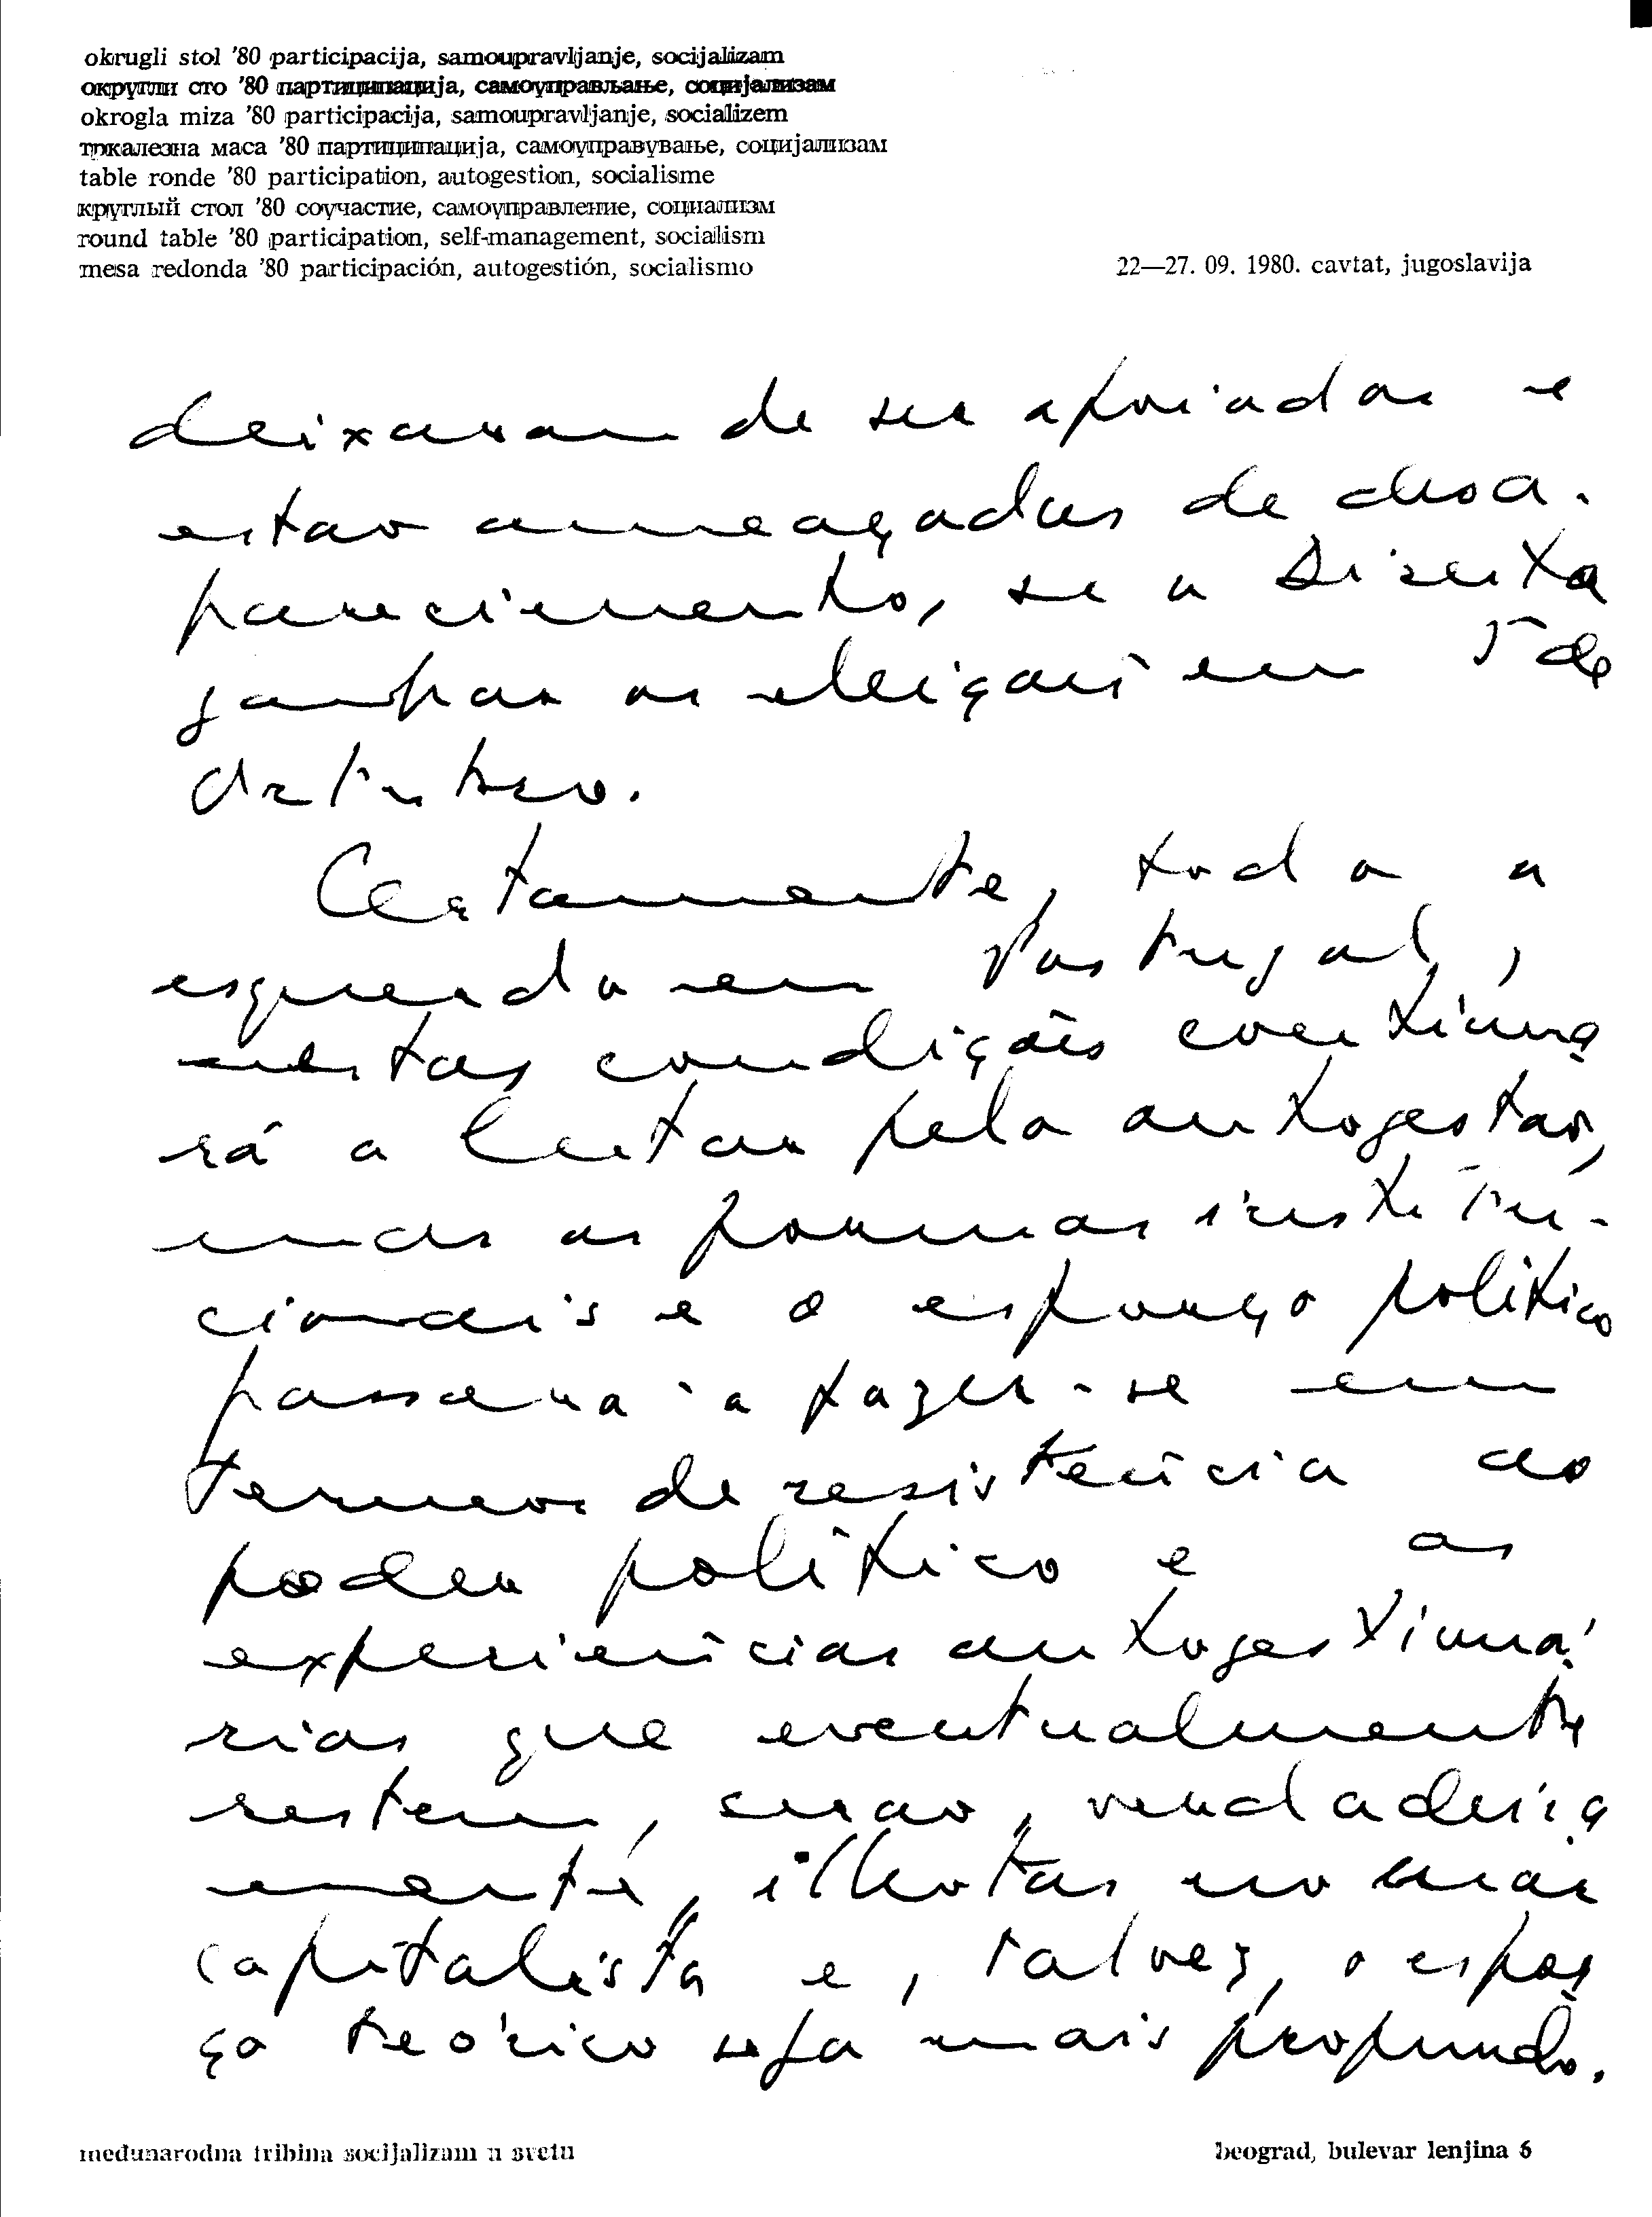 okrugli stol '80 participacija, samoupravljanje, socijalizam
округли сто '80 партиципација, самоуправљање, социјализам
okrogla miza '80 participacija, samoupravljanje, socializem
тркалезна маса '80 партиципација, самоуправување, социјализам
table ronde '80 participation, autogestion, socialisme
круглый стол '80 соучастие, самоуправление, социализм
round table '80 participation, self-management, socialism
mesa redonda '80 participación, autogestión, socialismo
22—27. 09. 1980. cavtat, jugoslavija
deixaram de ser apoiadas e
estão ameaçadas de desa-
parecimento, se a Direita
ganhar as eleições em 5 de
Outubro.
Certamente, toda a
esquerda em Portugal,
nestas condições continua
rá a lutar pela autogestão,
mas as formas institu-
cionais e o espaço político
passará a fazer-se em
termos de resistência ao
poder político e as
experiências autogestioná-
rias que eventualmente
restem, serão, verdadeira
mente, "ilhotas no mar
capitalista" e, talvez, o espa
ço teórico seja mais profundo.
međunarodna tribina socijalizam u svetu
beograd, bulevar lenjina 6